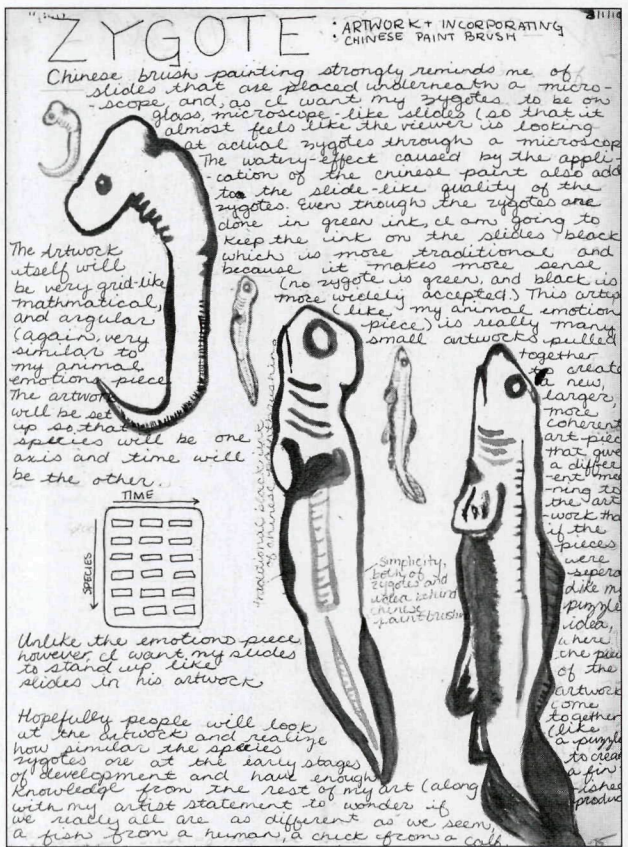 ZYGOTE : ARTWORK + INCORPORATING
CHINESE PAINT BRUSH
Chinese brush painting strongly reminds me of
slides that are placed underneath a micro-
-scope, and, as I want my zygotes to be on
glass, microscope-like slides (so that it
almost feels like the viewer is looking
at actual zygotes through a microscop
The watery-effect caused by the appli-
-cation of the chinese paint also add
to the slide-like quality of the
zygotes. Even though the zygotes are
done in green ink, I am going to
keep the ink on the slides black
which is more traditional and
because it makes more sense
(no zygote is green, and black is
more widely accepted.) This artis
(like my animal emotion
-piece) is really many
small artworks pulled
together
to create
a new,
larger,
more
coherent
art-piec
that give
a differ
-ent mea
-ning to
the art
-work tha
if the
pieces
were
sepera
like my
puzzle
idea,
where
the piec
of the
artwork
come
together
(like
a puzzle
to creat
a fin
-ished
produc
The Artwork
itself will
be very grid-like
mathmatical,
and angular
(again, very
similar to
my animal
emotions piece
The artwork
will be set
up so that
species will be one
axis and time will
be the other.
TIME
SPECIES
traditional black ink
of chinese paintbrushing
Simplicity,
both of
zygotes and
idea behind
chinese
paintbrushing
Unlike the emotions piece,
however, I want my slides
to stand up like
slides in his artwork
Hopefully people will look
at the artwork and realize
how similar the species
zygotes are at the early stages
of development and have enough
knowledge from the rest of my art (along
with my artist statement to wonder if
we really all are as different as we seem,
a fish from a human, a chick from a calf.